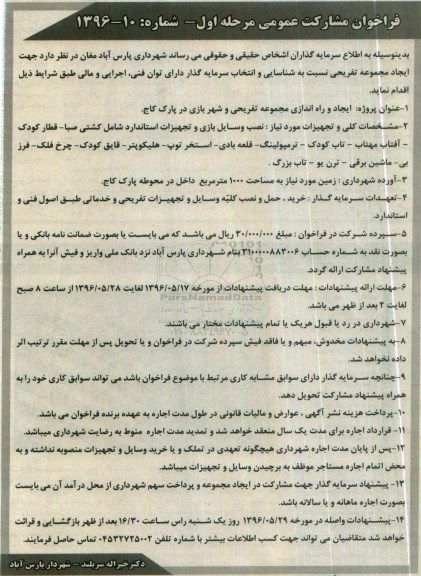 فراخوان مشارکت عمومی مرحله اول- شماره: ۱۰-۱۳۹۶
بدینوسیله به اطلاع سرمایه گذاران اشخاص حقیقی و حقوقی می رساند شهرداری پارس آباد مغان در نظر دارد جهت
ایجاد مجموعه تفریحی نسبت به شناسایی و انتخاب سرمایه گذار دارای توان فنی، اجرایی و مالی طبق شرایط ذیل
اقدام نماید.
۱-عنوان پروژه: ایجاد و راه اندازی مجموعه تفریحی و شهر بازی در پارک کاج.
۲-مشخصات کلی و تجهیزات مورد نیاز : نصب وسایل بازی و تجهیزات استاندارد شامل کشتی صبا- قطار کودک
- آفتاب مهتاب - تاب کودک - ترمپولینگ- قلعه بادی- استخر توپ- هلیکوپتر- قایق کودک- چرخ فلک- فرز
بی- ماشین برقی - ترن یو - تاب بزرگ .
۳-آورده شهرداری : زمین مورد نیاز به مساحت ۱۰۰۰ مترمربع داخل در محوطه پارک کاج.
۴-تعهدات سرمایه گذار : خرید ، حمل و نصب کلیه وسایل و تجهیزات تفریحی و خدماتی طبق اصول فنی و
استاندارد.
۵-سپرده شرکت در فراخوان : مبلغ ۳۰/۰۰۰/۰۰۰ ریال می باشد که می بایست یا بصورت ضمانت نامه بانکی و یا
بصورت نقد به شماره حساب ۳۱۰۰۰۰۰۸۸۳۰۰۶ بنام شهرداری پارس آباد نزد بانک ملی واریز و فیش آنرا به همراه
پیشنهاد مشارکت ارائه گردد.
۶-مهلت ارائه پیشنهادات : مهلت دریافت پیشنهادات از مورخه ۱۳۹۶/۰۵/۱۷ لغایت ۱۳۹۶/۰۵/۲۸ از ساعت ۸ صبح
لغایت ۲ بعد از ظهر می باشد.
ParsNamadData
۷-شهرداری در رد یا قبول هریک یا تمام پیشنهادات مختار می باشند.
۸-به پیشنهادات مخدوش، مبهم و یا فاقد فیش سپرده شرکت در فراخوان و یا تحویل پس از مهلت مقرر ترتیب اثر
داده نخواهد شد.
۹-چنانچه سرمایه گذار دارای سوابق مشابه کاری مرتبط با موضوع فراخوان باشد می تواند سوابق کاری خود را به
همراه پیشنهاد مشارکت تحویل دهد.
۱۰-پرداخت هزینه نشر آگهی ، عوارض و مالیات قانونی در طول مدت اجاره به عهده برنده فراخوان می باشد.
۱۱- قرارداد اجاره برای مدت یک سال منعقد خواهد شد و تمدید مدت اجاره منوط به رضایت شهرداری میباشد.
۱۲-پس از پایان مدت اجاره شهرداری هیچگونه تعهدی در تملک و یا خرید وسایل و تجهیزات منصوبه نداشته و به
محض اتمام اجاره مستاجر موظف به برچیدن وسایل و تجهیزات میباشد.
۱۳- پیشنهاد سرمایه گذار جهت مشارکت در ایجاد مجموعه و پرداخت سهم شهرداری از محل درآمد آن می بایست
بصورت اجاره ماهانه و یا سالانه باشد.
۱۴-پیشنهادات واصله در مورخه ۱۳۹۶/۰۵/۲۹ روز یک شنبه راس ساعت ۱۶/۳۰ بعد از ظهر بازگشایی و قرائت
خواهد شد متقاضیان می تواند جهت کسب اطلاعات بیشتر با شماره تلفن ۰۴۵۳۲۷۲۵۰۰۲ تماس حاصل فرمایند.
دکتر خیراله سربلند - شهردار پارس آباد